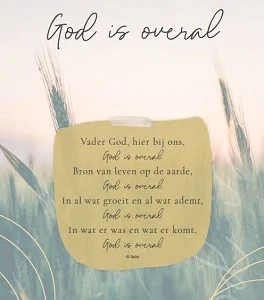 God is overal
Vader God, hier bij ons,
God is overal
Bron van leven op de aarde,
God is overal
In al wat groeit en al wat ademt,
God is overal
In wat er was en wat er komt,
God is overal